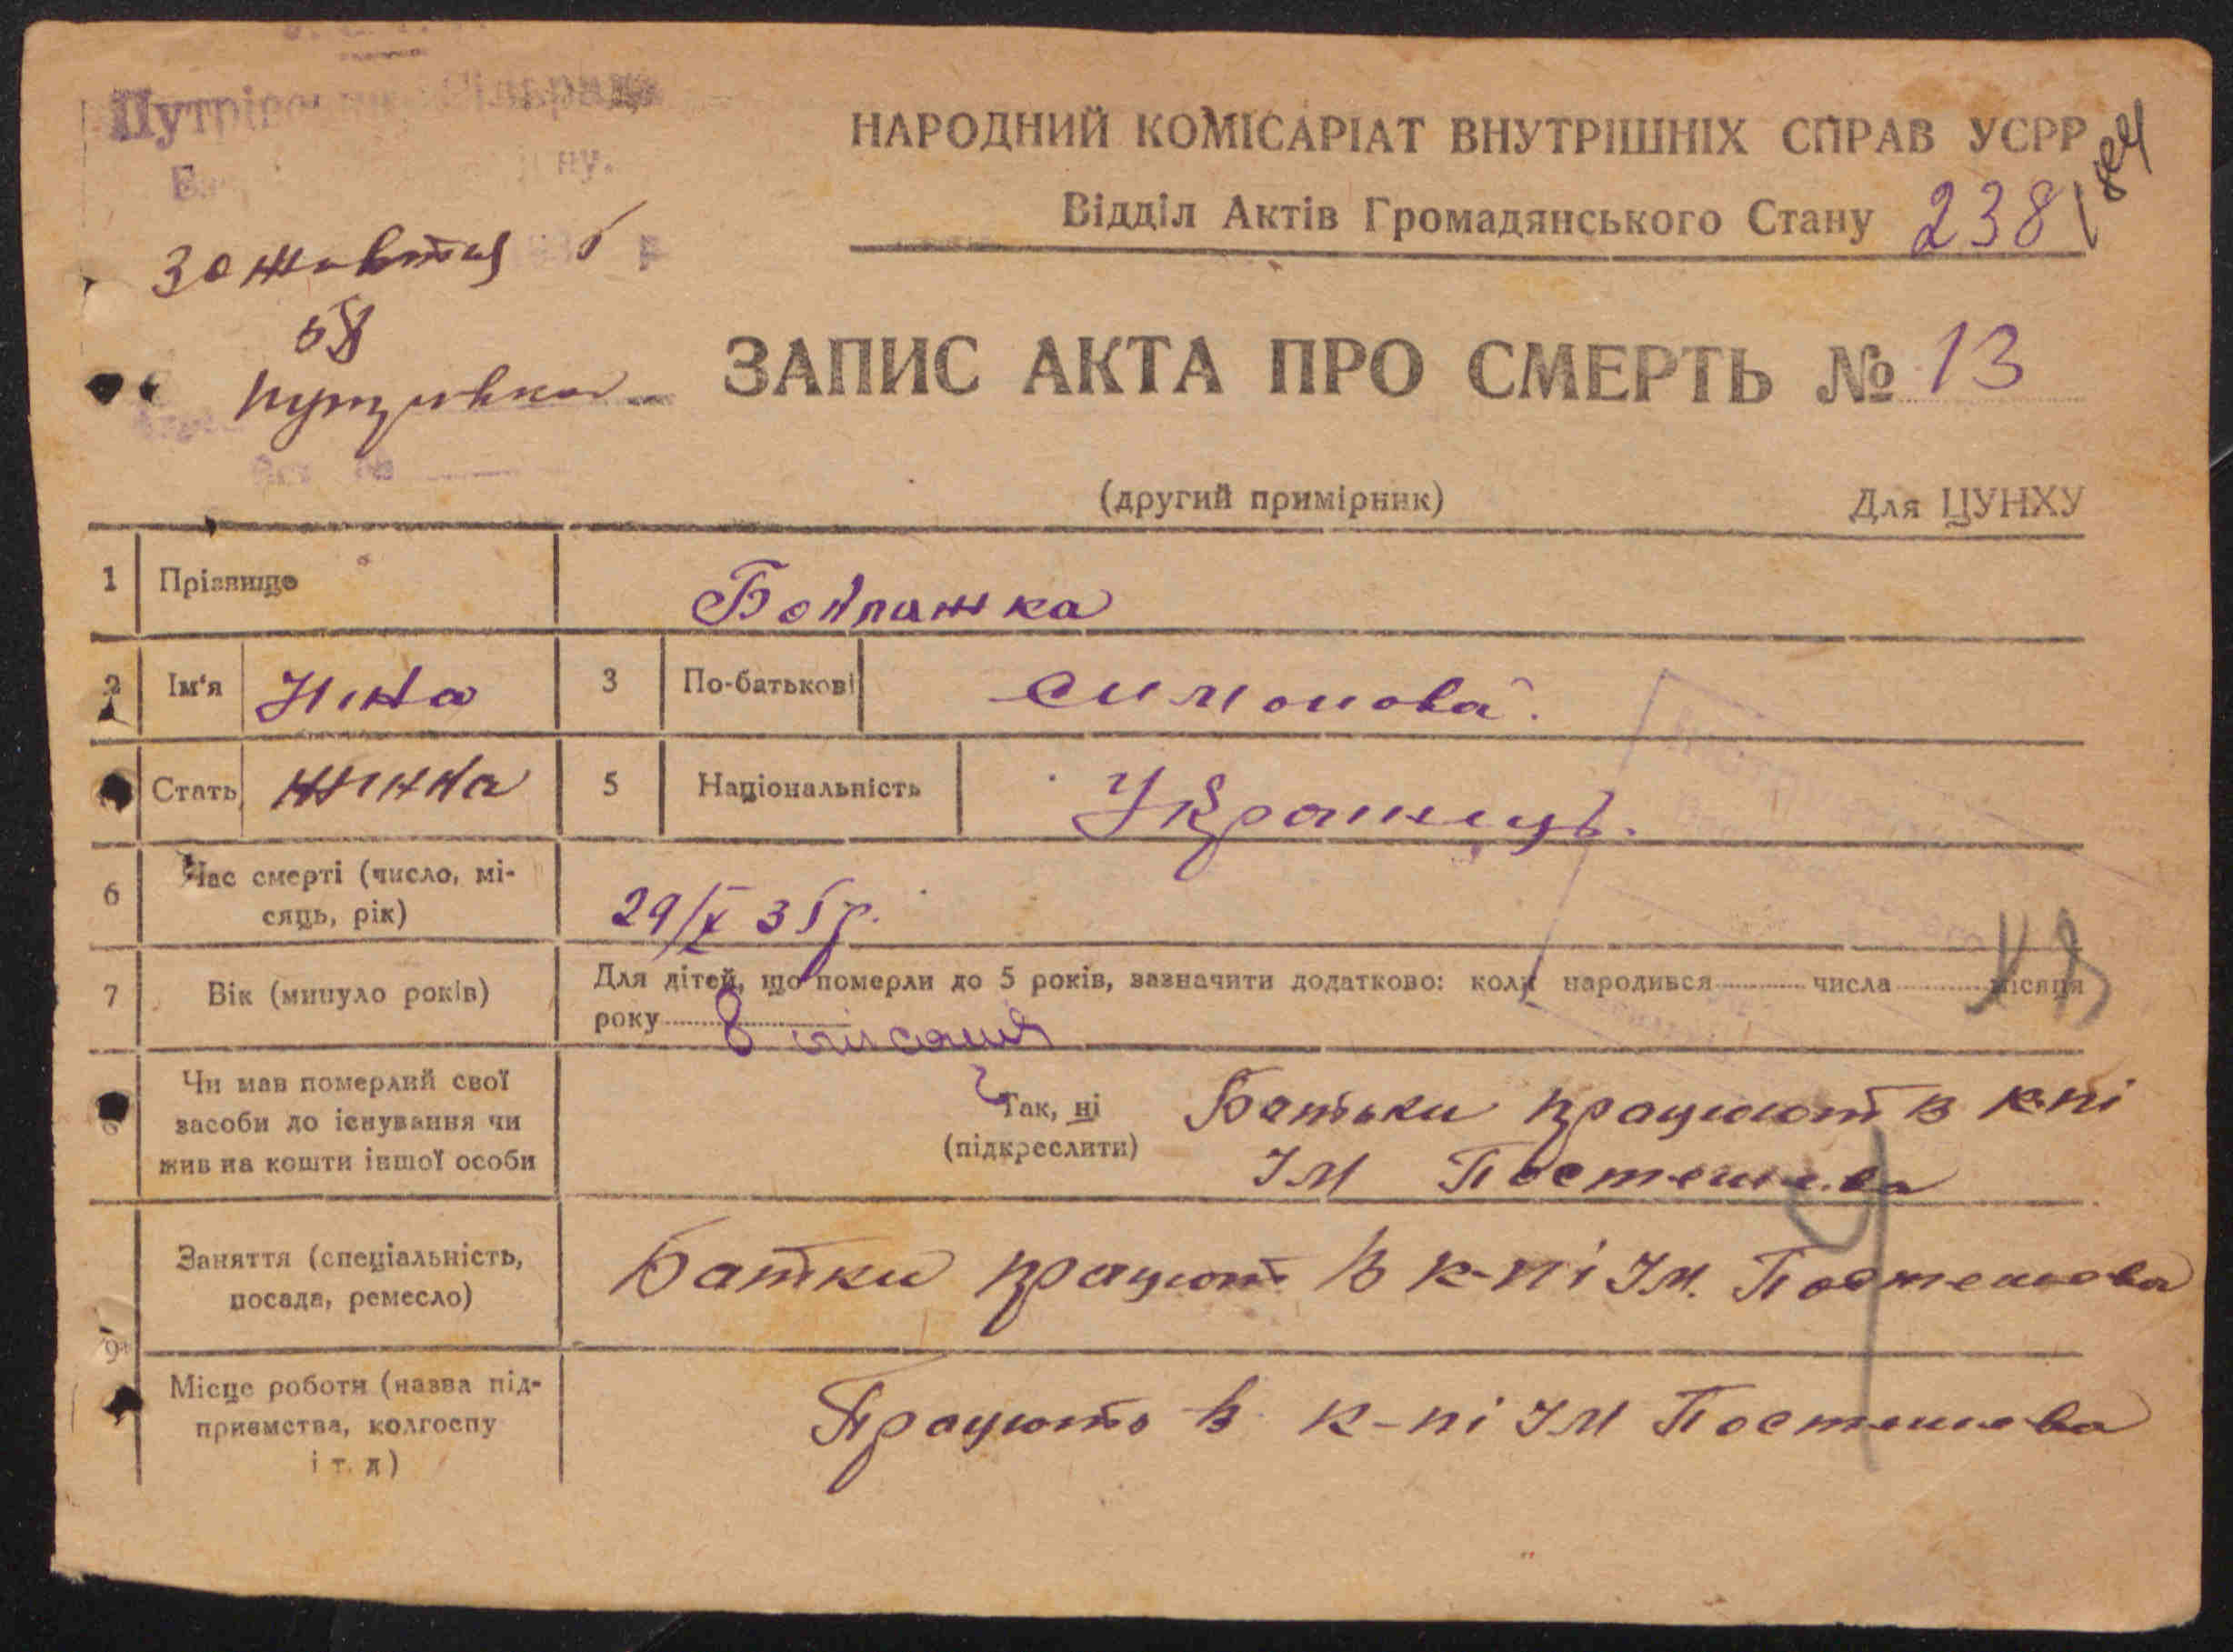 30 жовтня 5
58
Путрівка
НАРОДНИЙ КОМІСАРІАТ ВНУТРІШНІХ СПРАВ УСРР
Відділ Актів Громадянського Стану 238
ЗАПИС АКТА ПРО СМЕРТЬ № 13
(другий примірник) Для ЦУНХУ
1 Прізвище
2 Ім'я Ніна 3 По-батькові Симонова.
Стать жинка 5 Національність Українць.
6 Час смерті (число, мі-
сяць, рік) 29/X 35р.
7 Вік (минуло років) Для дітей, що померли до 5 років, зазначити додатково: коли народився числа місяця
року 8 місяців
Чи мав померлий свої
засоби до існування чи
жив на кошти іншої особи
Так, ні
(підкреслити)
Батьки працюют в к-пі
ІМ Постешева
Заняття (спеціальність,
посада, ремесло) Батки працют в к-пі ІМ. Постешева
9
Місце роботи (назва під-
приємства, колгоспу
і т. д) Працють в к-пі ІМ Постешева